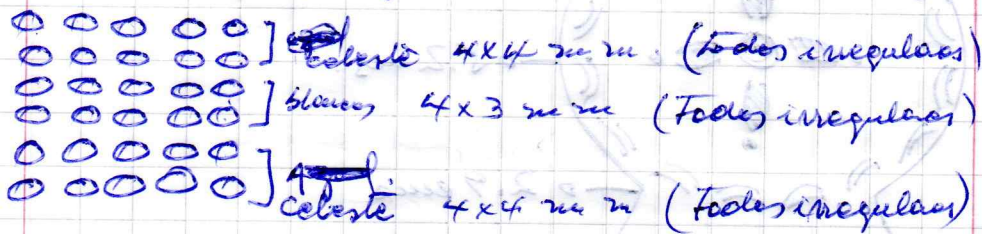 Celeste 4x4 mm (todos irregulares)
blancos 4x3 mm (Todos irregulares)
Celeste 4x4 mm (Todos irregulares)